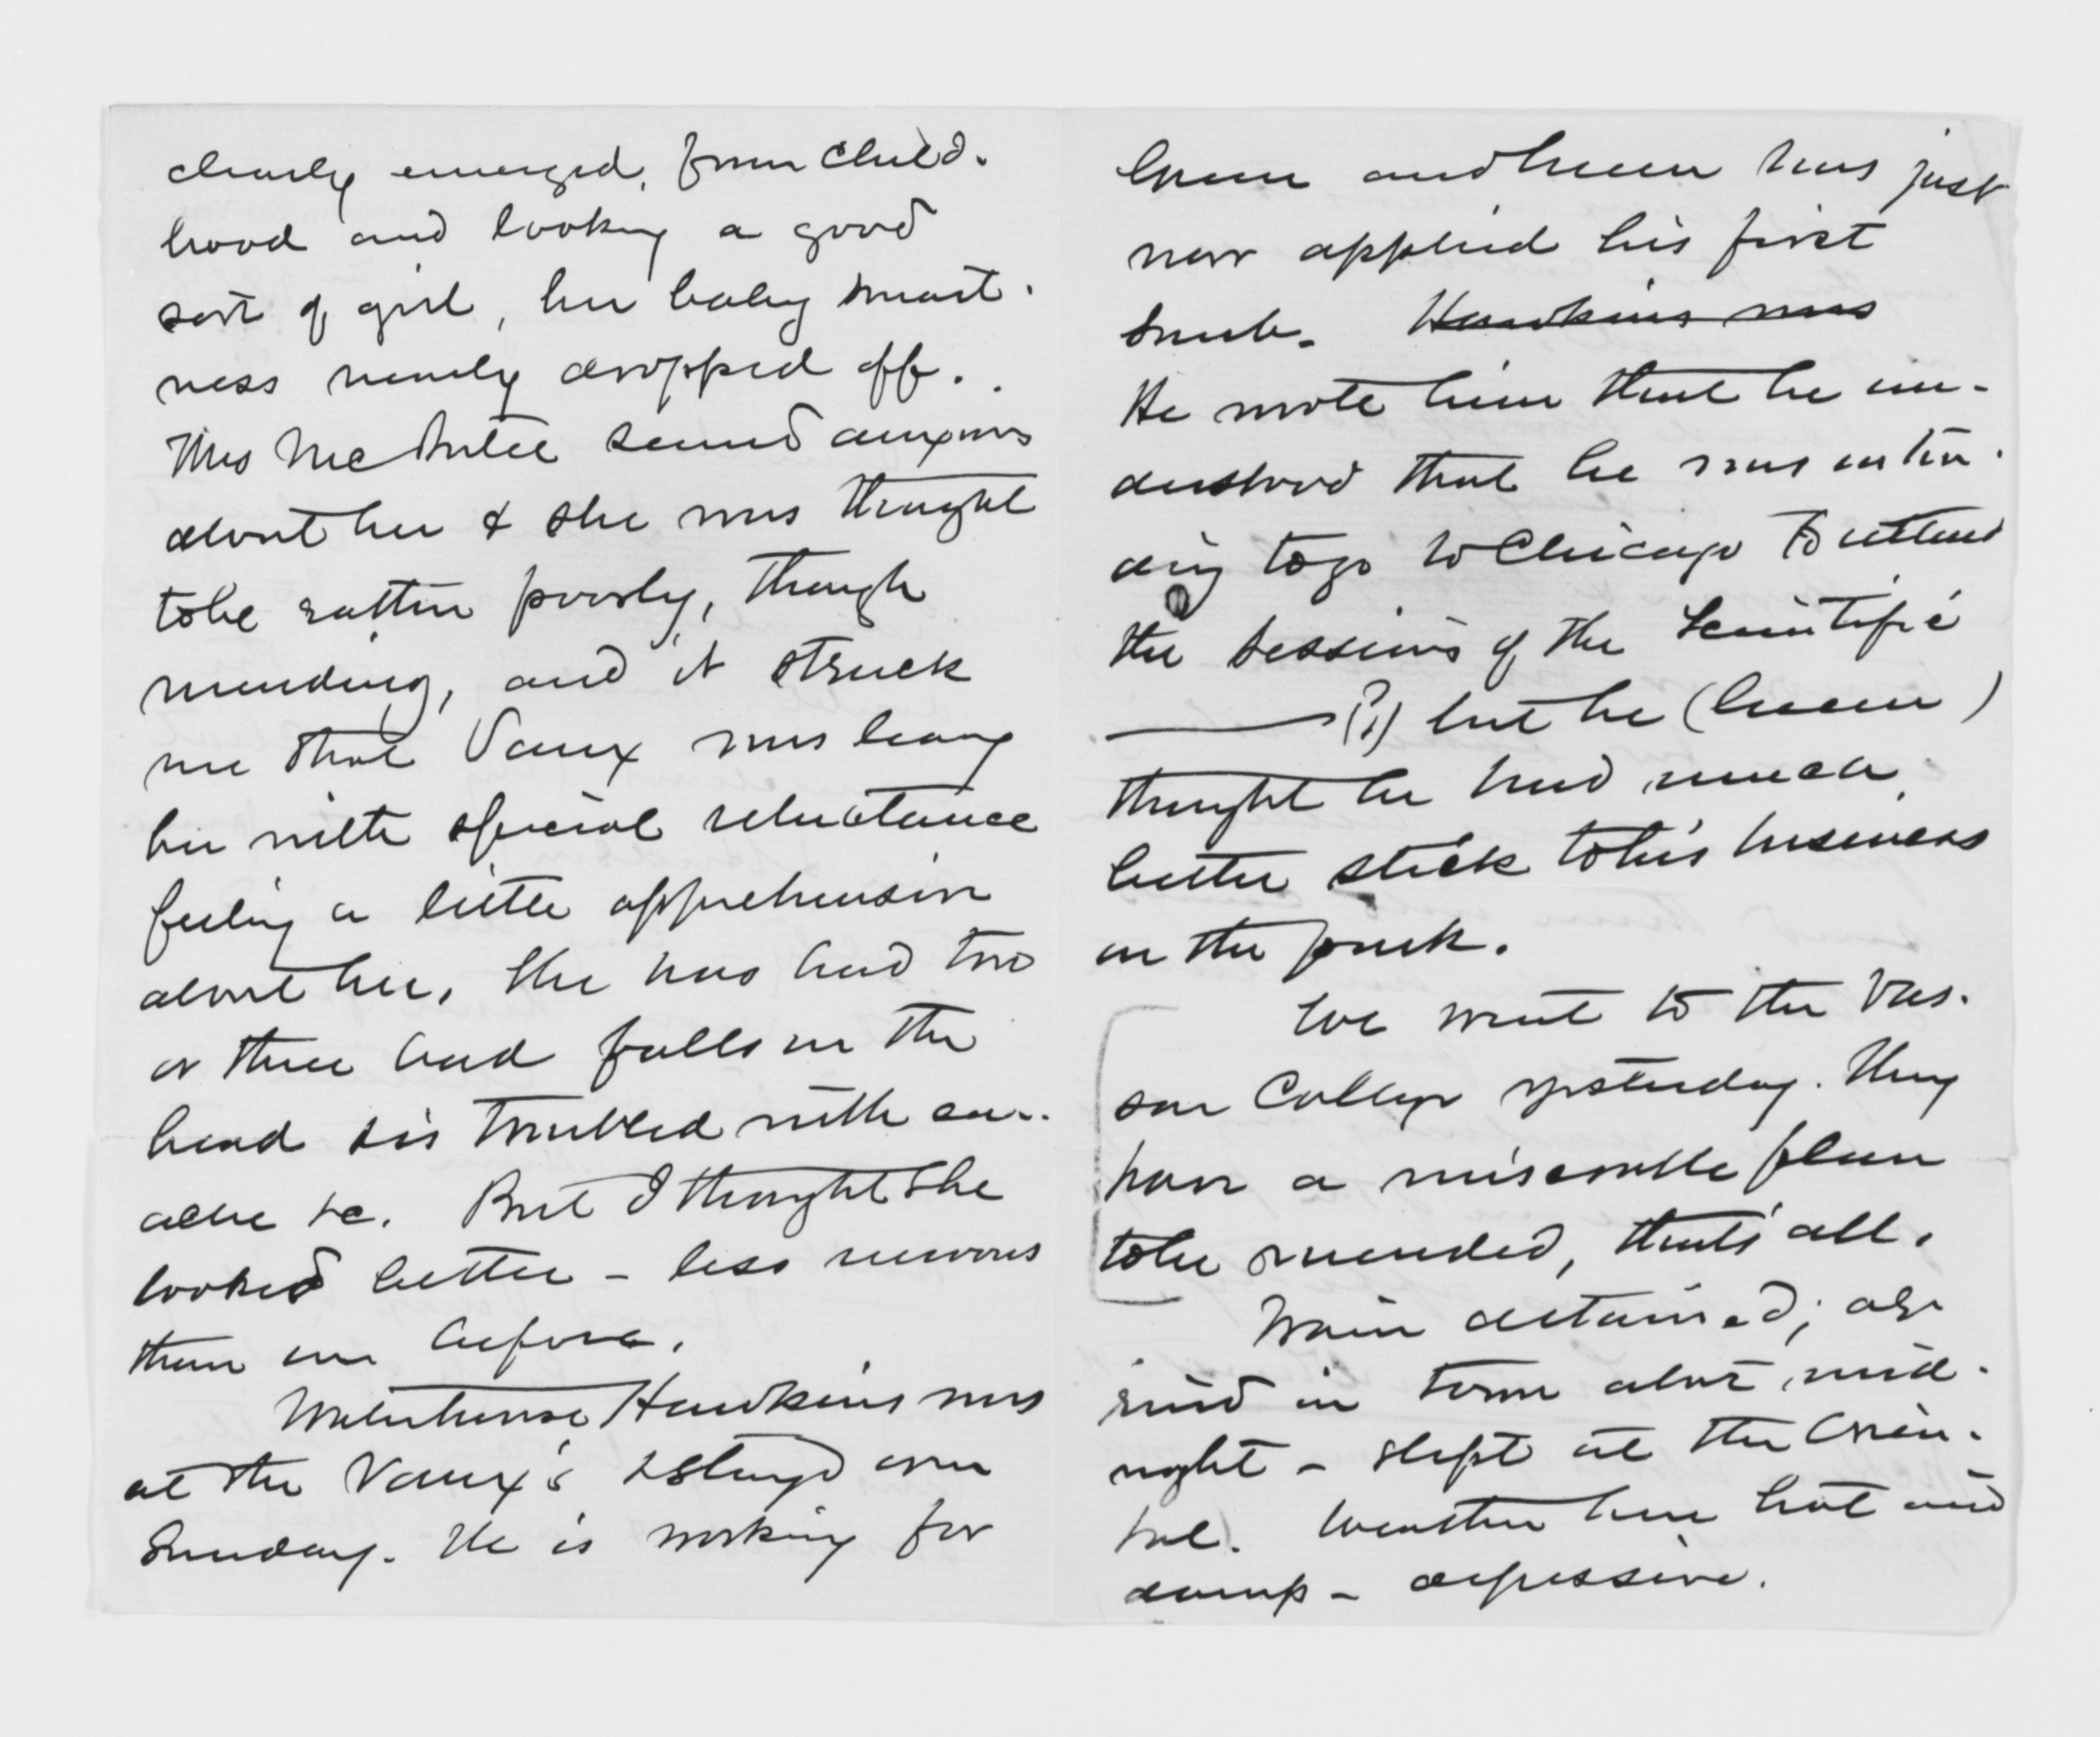 clearly emerged, from child-
hood and looking a good
sort of girl, her baby smart-
ness nearly dropped off.
Mrs McEntee seemed anxious
about her & she was thought
to be rather poorly, though
mending, and it struck
me that Vaux was leaving
her with special reluctance
feeling a little apprehension
about her. She has had two
or three bad falls on the
head & is troubled with ear-
ache &c. But I thought she
looked better - less nervous
than ever before.
Waterhouse Hawkins was
at the Vaux's & stayed over
Sunday. He is working for
Green and Green has just
now applied his first
snub. Hawkins was
He wrote him that he un-
derstood that he was inten-
ding to go to Chicago to attend
the sessions of the Scientific
——— (?) but he (Green)
thought he had much
better stick to his business
on the park.
We went to the Vas-
sar College yesterday. They
have a miserable plan
to be mended, that's all.
Train detained; ar-
rived in town about mid-
night - slept at the Orien-
tal. Weather here hot and
damp - depressive.